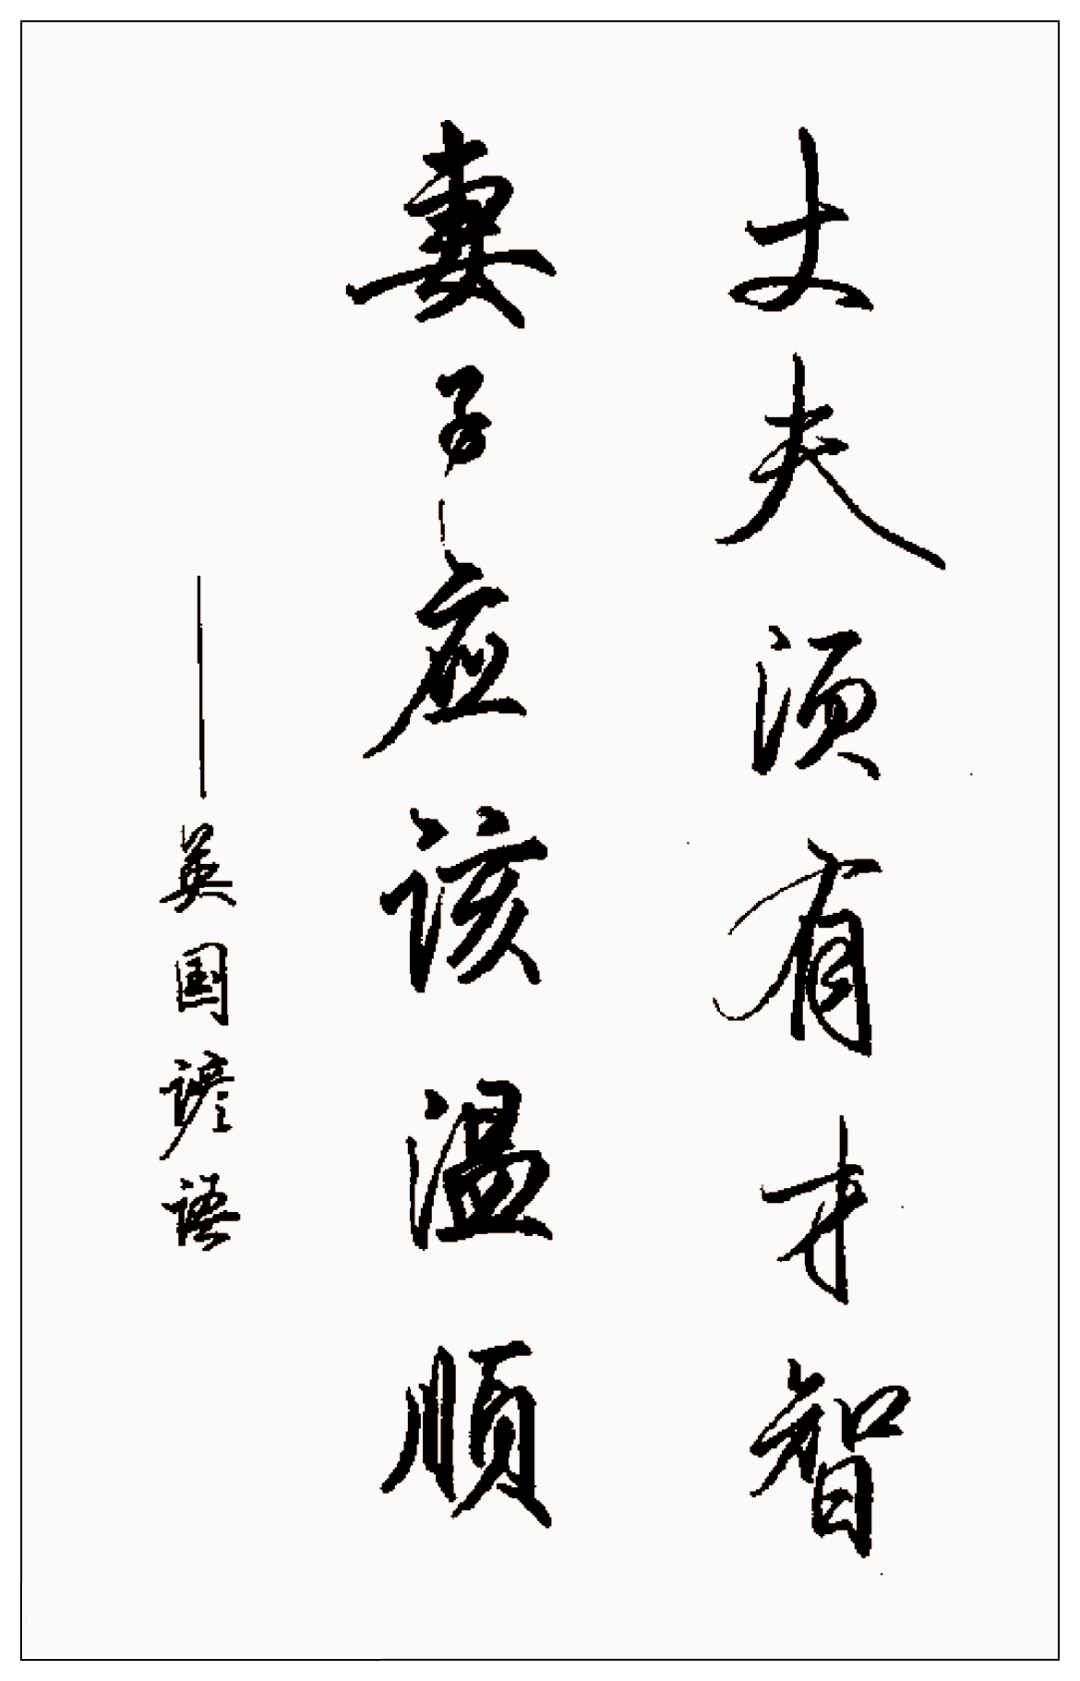 丈夫须有才智
妻子应该温顺
——英国谚语